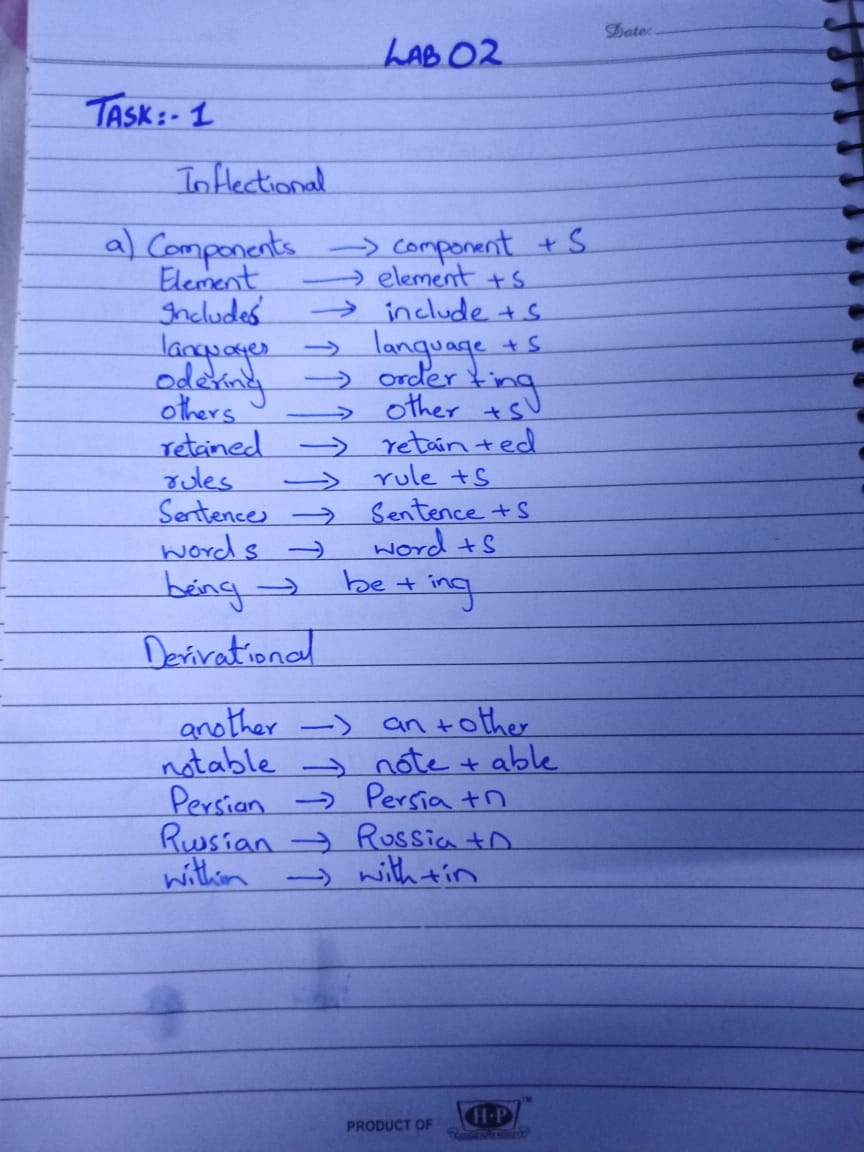 Date:
LAB 02
TASK:- 1
Inflectional
a) Components → component + S
Element → element + s
Includes → include + s
languages → language + s
odering → order + ing
others → other + s
retained → retain + ed
rules → rule + s
Sentences → Sentence + s
words → word + s
being → be + ing
Derivational
another → an + other
notable → note + able
Persian → Persia + n
Russian → Russia + n
within → with + in
PRODUCT OF H·P TM